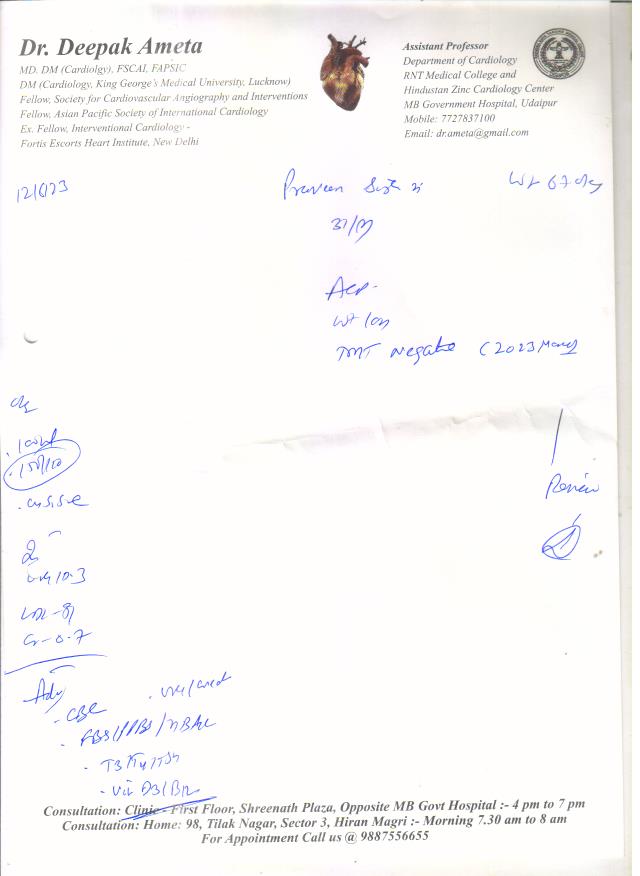 Dr. Deepak Ameta
MD. DM (Cardiolgy), FSCAI, FAPSIC
DM (Cardiology, King George's Medical University, Lucknow)
Fellow, Society for Cardiovascular Angiography and Interventions
Fellow, Asian Pacific Society of International Cardiology
Ex. Fellow, Interventional Cardiology -
Fortis Escorts Heart Institute, New Delhi
Assistant Professor
Department of Cardiology
RNT Medical College and
Hindustan Zinc Cardiology Center
MB Government Hospital, Udaipur
Mobile: 7727837100
Email: dr.ameta@gmail.com
Praveen
Wt 67
TMT Negative (2023
150/100
LDL - 81
Cr - 0.7
Review
Adv
- CBC
- FBS/PPBS/HBA1c
- T3/T4/TSH
- Vit D3/B12
Consultation: Clinic - First Floor, Shreenath Plaza, Opposite MB Govt Hospital :- 4 pm to 7 pm
Consultation: Home: 98, Tilak Nagar, Sector 3, Hiran Magri :- Morning 7.30 am to 8 am
For Appointment Call us @ 9887556655